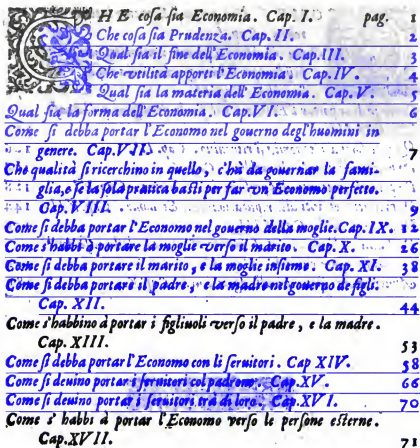 CHE cosa sia Economia. Cap. I. pag. 1
Che cosa sia Prudenza. Cap. II. 2
Qual sia il fine dell'Economia. Cap. III. 3
Che vtilità apporti l'Economia. Cap. IV. 4
Qual sia la materia dell'Economia. Cap. V. 5
Qual sia la forma dell'Economia. Cap. VI. 6
Come si debba portar l'Economo nel gouerno degl'huomini in
genere. Cap. VII. 7
Che qualità si ricerchino in quello, c'hà da gouernar la fami-
glia, e se la sola pratica basti per far vn'Economo perfetto.
Cap. VIII. 9
Come si debba portar l'Economo nel gouerno della moglie. Cap. IX. 12
Come s'habbi à portare la moglie verso il marito. Cap. X. 26
Come si debba portare il marito, e la moglie insieme. Cap. XI. 38
Come si debba portare il padre, e la madre nel gouerno de figli.
Cap. XII. 44
Come s'habbino à portar i figliuoli verso il padre, e la madre.
Cap. XIII. 53
Come si debba portar l'Economo con li seruitori. Cap XIV. 58
Come si deuino portar i seruitori col padrone. Cap. XV. 66
Come si deuino portar i seruitori trà di loro. Cap. XVI. 70
Come s'habbi à portar l'Economo verso le persone esterne.
Cap. XVII. 71